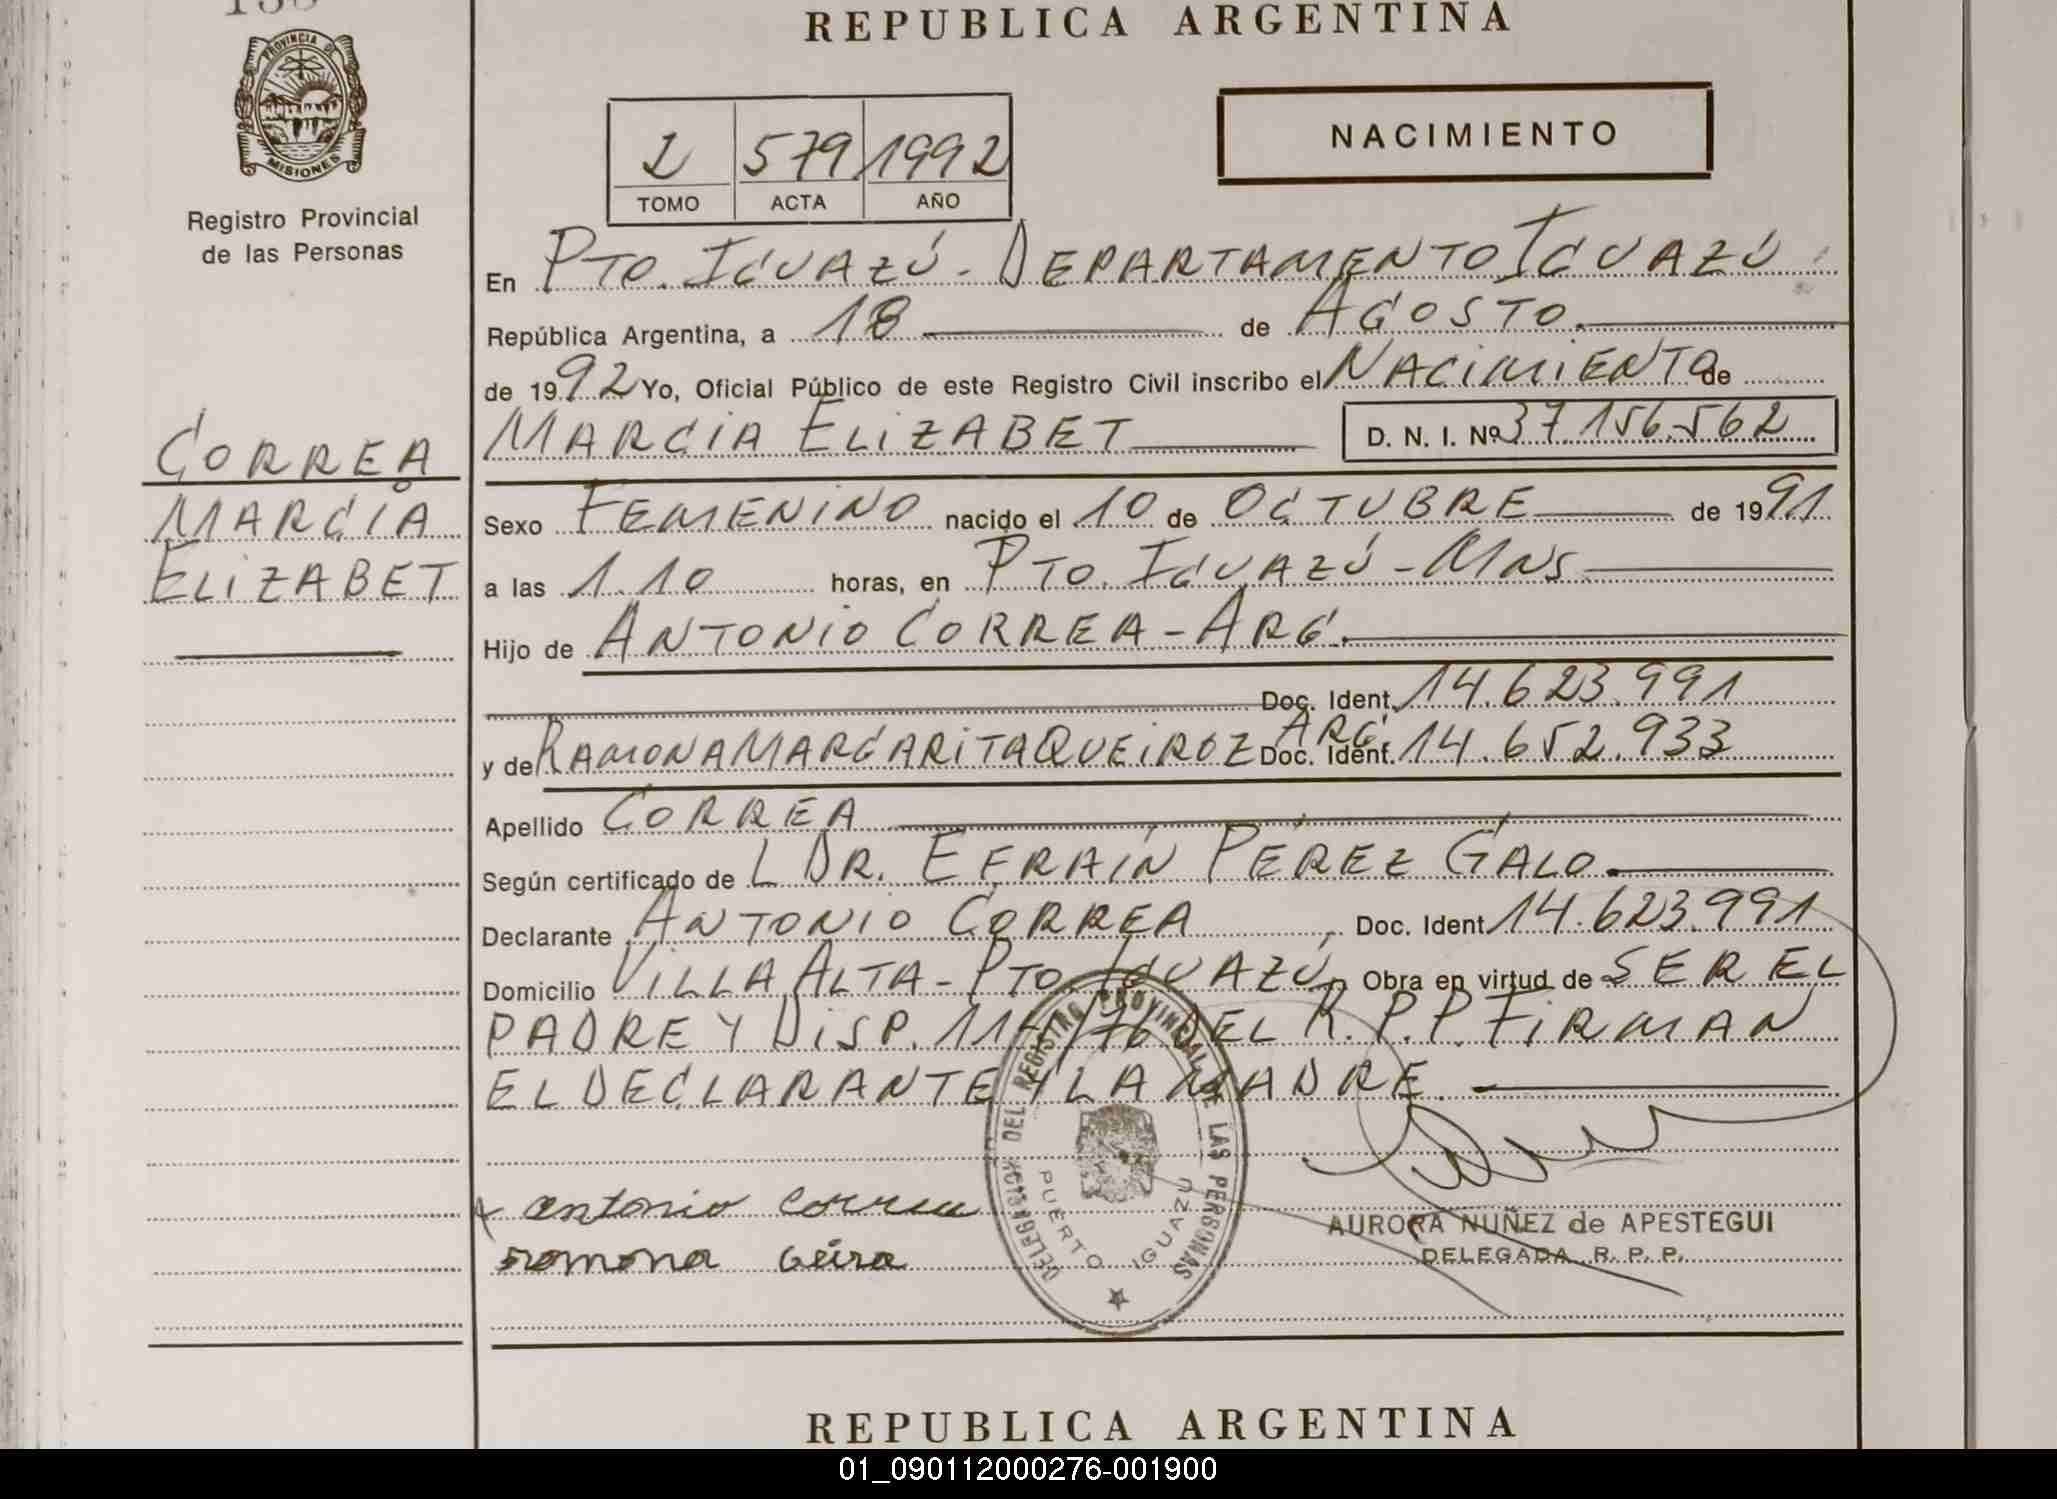 REPUBLICA ARGENTINA
PROVINCIA DE
MISIONES
Registro Provincial
de las Personas
NACIMIENTO
2 579 1992
TOMO ACTA AÑO
En PTO. IGUAZÚ - DEPARTAMENTO IGUAZÚ
República Argentina, a 18 de AGOSTO.
de 1992 Yo, Oficial Público de este Registro Civil inscribo el NACIMIENTO de
MARCIA ELIZABET D. N. I. Nº 37.156.562
CORREA
MARCIA
ELIZABET
Sexo FEMENINO nacido el 10 de OCTUBRE de 1991
a las 1.10 horas, en PTO. IGUAZÚ - MNS
Hijo de ANTONIO CORREA - ARG.
Doc. Ident. 14.623.991
y de RAMONA MARGARITA QUEIROZ ARG. Doc. Ident. 14.652.933
Apellido CORREA
Según certificado de L DR. EFRAÍN PÉREZ GALO.
Declarante ANTONIO CORREA Doc. Ident 14.623.991
Domicilio VILLA ALTA - PTO. IGUAZÚ, Obra en virtud de SER EL
PADRE Y DISP. /76 DEL R.P.P. FIRMAN
EL DECLARANTE Y LA MADRE.
antonio correa
romona
DELEGACION DEL REGISTRO PROVINCIAL DE LAS PERSONAS
PUERTO IGUAZU
AURORA NUÑEZ de APESTEGUI
DELEGADA R. P. P.
REPUBLICA ARGENTINA
01_090112000276-001900